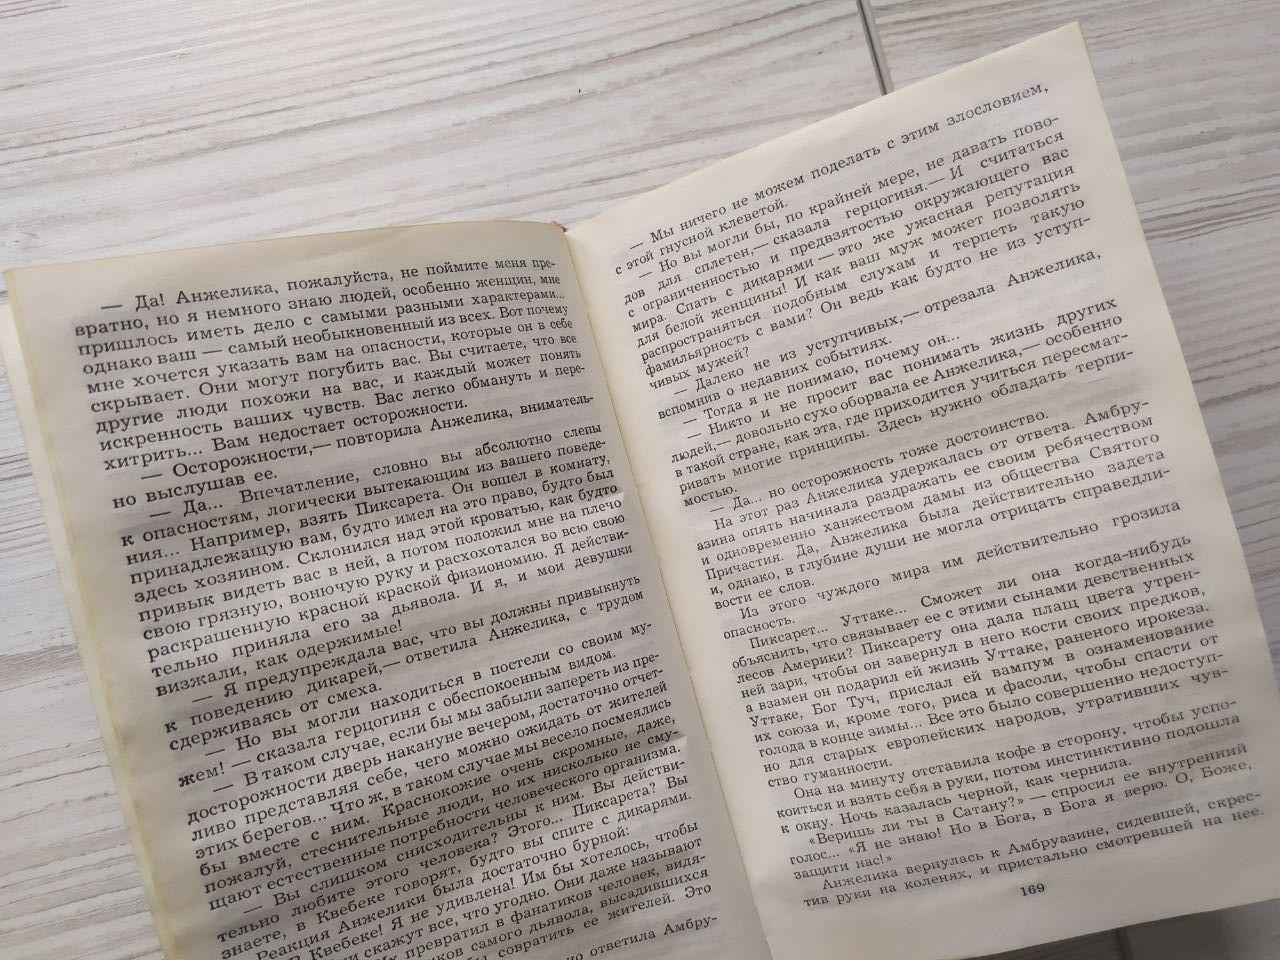 — Да! Анжелика, пожалуйста, не поймите меня пре-
вратно, но я немного знаю людей, особенно женщин, мне
пришлось иметь дело с самыми разными характерами...
однако ваш — самый необыкновенный из всех. Вот почему
мне хочется указать вам на опасности, которые он в себе
скрывает. Они могут погубить вас. Вы считаете, что все
другие люди похожи на вас, и каждый может понять
искренность ваших чувств. Вас легко обмануть и пере-
хитрить... Вам недостает осторожности.
— Осторожности,— повторила Анжелика, вниматель-
но выслушав ее.
— Да... Впечатление, словно вы абсолютно слепы
к опасностям, логически вытекающим из вашего поведе-
ния... Например, взять Пиксарета. Он вошел в комнату,
принадлежащую вам, будто имел на это право, будто был
здесь хозяином. Склонился над этой кроватью, как будто
привык видеть вас в ней, а потом положил мне на плечо
свою грязную, вонючую руку и расхохотался во всю свою
раскрашенную красной краской физиономию. Я действи-
тельно приняла его за дьявола. И я, и мои девушки
визжали, как одержимые!
— Я предупреждала вас, что вы должны привыкнуть
к поведению дикарей,— ответила Анжелика, с трудом
сдерживаясь от смеха.
— Но вы могли находиться в постели со своим му-
жем! — сказала герцогиня с обеспокоенным видом.
— В таком случае, если бы мы забыли запереть из пре-
досторожности дверь накануне вечером, достаточно отчет-
ливо представляя себе, чего можно ожидать от жителей
этих берегов... Что ж, в таком случае мы весело посмеялись
бы вместе с ним. Краснокожие очень скромные, даже,
пожалуй, стеснительные люди, но их нисколько не сму-
щают естественные потребности человеческого организма.
— Вы слишком снисходительны к ним. Вы действи-
тельно любите этого человека? Этого... Пиксарета? Вы
знаете, в Квебеке говорят, будто вы спите с дикарями.
Реакция Анжелики была достаточно бурной:
В Квебеке! Я не удивлена! Им бы хотелось, чтобы
скажут все, что угодно. Они даже называют
превратил в фанатиков человек, видя-
самого дьявола, высадившихся
совратить ее жителей. Это
ответила Амбру-
— Мы ничего не можем поделать с этим злословием,
с этой гнусной клеветой.
— Но вы могли бы, по крайней мере, не давать пово-
дов для сплетен,— сказала герцогиня.— И считаться
с ограниченностью и предвзятостью окружающего вас
мира. Спать с дикарями — это же ужасная репутация
для белой женщины! И как ваш муж может позволять
распространяться подобным слухам и терпеть такую
фамильярность с вами? Он ведь как будто не из уступ-
чивых мужей?
— Далеко не из уступчивых,— отрезала Анжелика,
вспомнив о недавних событиях.
— Тогда я не понимаю, почему он...
— Никто и не просит вас понимать жизнь других
людей,— довольно сухо оборвала ее Анжелика,— особенно
в такой стране, как эта, где приходится учиться пересмат-
ривать многие принципы. Здесь нужно обладать терпи-
мостью.
— Да... но осторожность тоже достоинство.
На этот раз Анжелика удержалась от ответа. Амбру-
азина опять начинала раздражать ее своим ребячеством
и одновременно ханжеством дамы из общества Святого
Причастия. Да, Анжелика была действительно задета
и, однако, в глубине души не могла отрицать справедли-
вости ее слов.
Из этого чуждого мира им действительно грозила
опасность.
Пиксарет... Уттаке... Сможет ли она когда-нибудь
объяснить, что связывает ее с этими сынами девственных
лесов Америки? Пиксарету она дала плащ цвета утрен-
ней зари, чтобы он завернул в него кости своих предков,
а взамен он подарил ей жизнь Уттаке, раненого ирокеза.
Уттаке, Бог Туч, прислал ей вампум в ознаменование
их союза и, кроме того, риса и фасоли, чтобы спасти от
голода в конце зимы... Все это было совершенно недоступ-
но для старых европейских народов, утративших чув-
ство гуманности.
Она на минуту отставила кофе в сторону, чтобы успо-
коиться и взять себя в руки, потом инстинктивно подошла
к окну. Ночь казалась черной, как чернила.
«Веришь ли ты в Сатану?» — спросил ее внутренний
голос... «Я не знаю! Но в Бога, в Бога я верю. О, Боже,
защити нас!»
Анжелика вернулась к Амбруазине, сидевшей, скрес-
тив руки на коленях, и пристально смотревшей на нее.
169